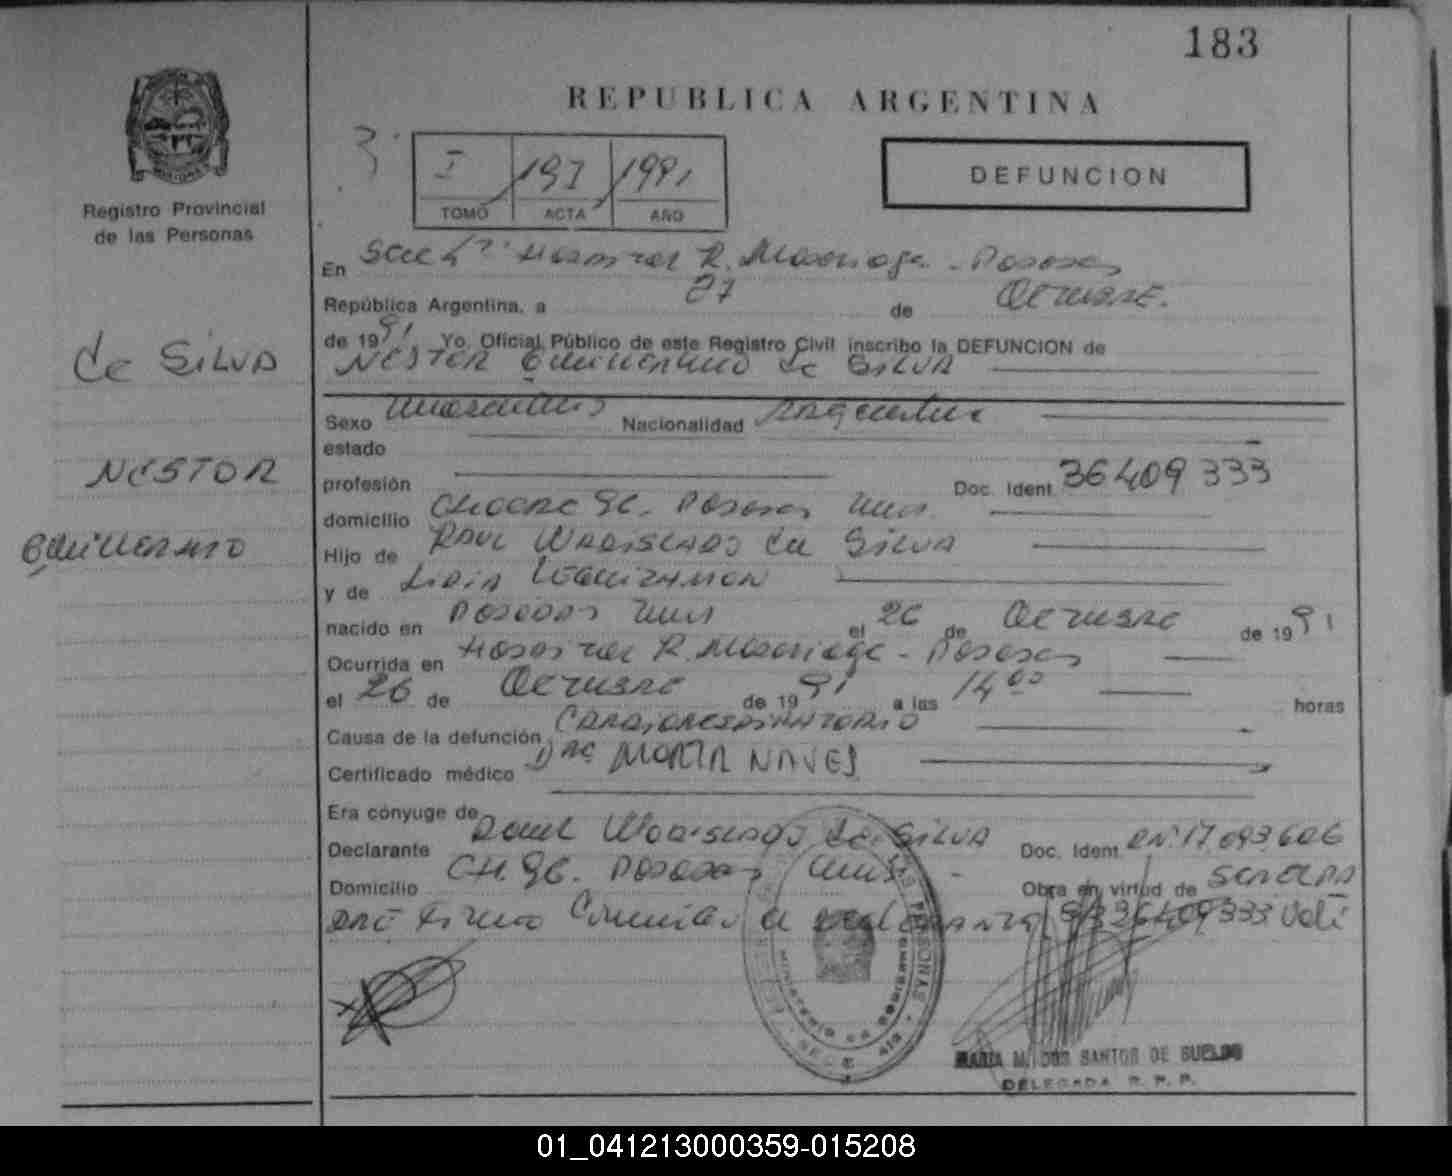 183
REPUBLICA ARGENTINA
Registro Provincial
de las Personas
3
I 1991
TOMO ACTA AÑO
DEFUNCION
En Hospital R. Madariaga - Posadas
República Argentina, a 27 de Octubre.
de 1991. Yo, Oficial Público de este Registro Civil inscribo la DEFUNCION de
NESTOR GUILLERMO de SILVA
de SILVA
NESTOR
GUILLERMO
Sexo masculino Nacionalidad Argentina
estado
profesión Doc. Ident. 36409333
domicilio 96. Posadas Mnes.
Hijo de RAUL WADISLADO de SILVA
y de LIDIA LEGUIZAMON
nacido en Posadas Mnes el 26 de Octubre de 1991
Ocurrida en Hospital R. Madariaga - Posadas
el 26 de Octubre de 1991 a las 14 00 horas
Causa de la defunción CARDIORESPIRATORIO
Certificado médico DRA MARTA NAVES
Era cónyuge de
Declarante Raul WADISLADO de SILVA Doc. Ident. 17093606
Domicilio CH. 96. Posadas Mnes - Obra en virtud de
36409333 Vale
MARIA M. DOS SANTOS DE SUELDO
DELEGADA R. P. P.
01_041213000359-015208